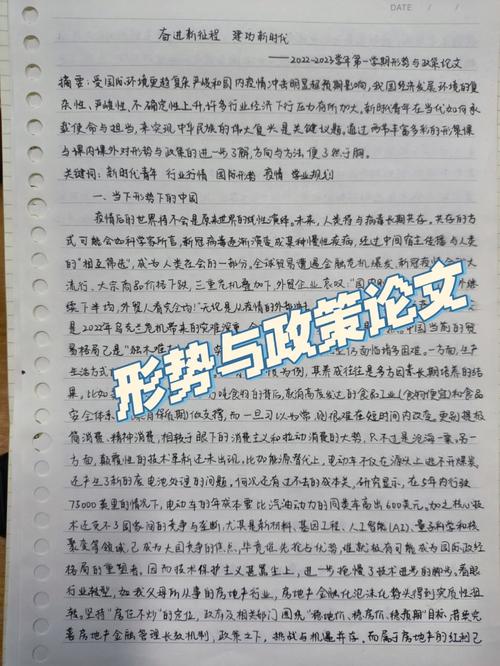 DATE
奋进新征程 建功新时代
——2022-2023学年第一学期形势与政策论文
摘要:受国际环境更趋复杂严峻和国内疫情冲击明显超预期影响,我国经济发展环境的复
杂性、严峻性、不确定性上升,许多行业经济下行压力有所加大。新时代青年在当代如何承
载使命与担当,来实现中华民族的伟大复兴是关键议题。通过两节丰富多彩的形策课
与课内课外对形势与政策的进一步了解,方向与方法便了然于胸。
关键词:新时代青年 行业行情 国际形势 疫情 学业规划
一、当下形势下的中国
疫情后的世界将不会是原来世界的线性演绎。未来,人类将与病毒长期共存。共存的方
式可能会如科学家所言,新冠病毒逐渐演变成某种慢性疾病,经过中间宿主传播与人类
的"相互筛选",成为人类社会的一部分。全球贸易遭遇金融危机爆发、新冠疫
流行、大宗商品价格下跌,三重危机叠加下,外贸企业哀叹:
续下半内,外贸人看完全内!"无论是从疫情的外部
是2022年乌克兰危机带来的灾难深重
易格局已是"独木难
方面面惜多困难。一方面,生产
生活方式 为例,其养成往往是多方因素长期培养的结
果,比如 吃食物的背后,取消高度发达的食品工业(食物便宜)和食品
安全体系 有保质期)做支撑,而一旦习以为常,则很难在短时间内改变。更别提极
简消费、精神消费,相较于眼下的消费主义和拉动消费的大势,只不过是沧海一粟。另一
方面,颠覆性的技术革新还未出现。比如能源替代上,电动车不仅在源头上逃不开煤炭,
还产生了新的废电池处理的问题。何况还有过不去的成本关,研究显示,在5年内行驶
75000英里的情况下,电动车的年成本要比汽油动力的同类车高出600美元。加之核心技
术还受不了国家间的竞争与垄断,尤其是新材料、基因工程、人工智能(AI)、量子科学和核
聚变等领域,已成为大国竞争的焦点,毕竟谁先抢占优势,谁就极有可能成为国际政经
格局的重塑者。因而技术保护主义甚嚣尘上,进一步拖慢了技术进步的脚步。着眼
行业转型,如我父母所从事的房地产行业,房地产金融化泡沫化势头得到实质性扭
转。坚持"房住不炒"的定位,政府及相关部门围绕"稳地价、稳房价、稳预期"目标,落实完
善房地产金融管理长效机制,政策之下,挑战与机遇并存。而属于房地产的红利已
形势与政策论文